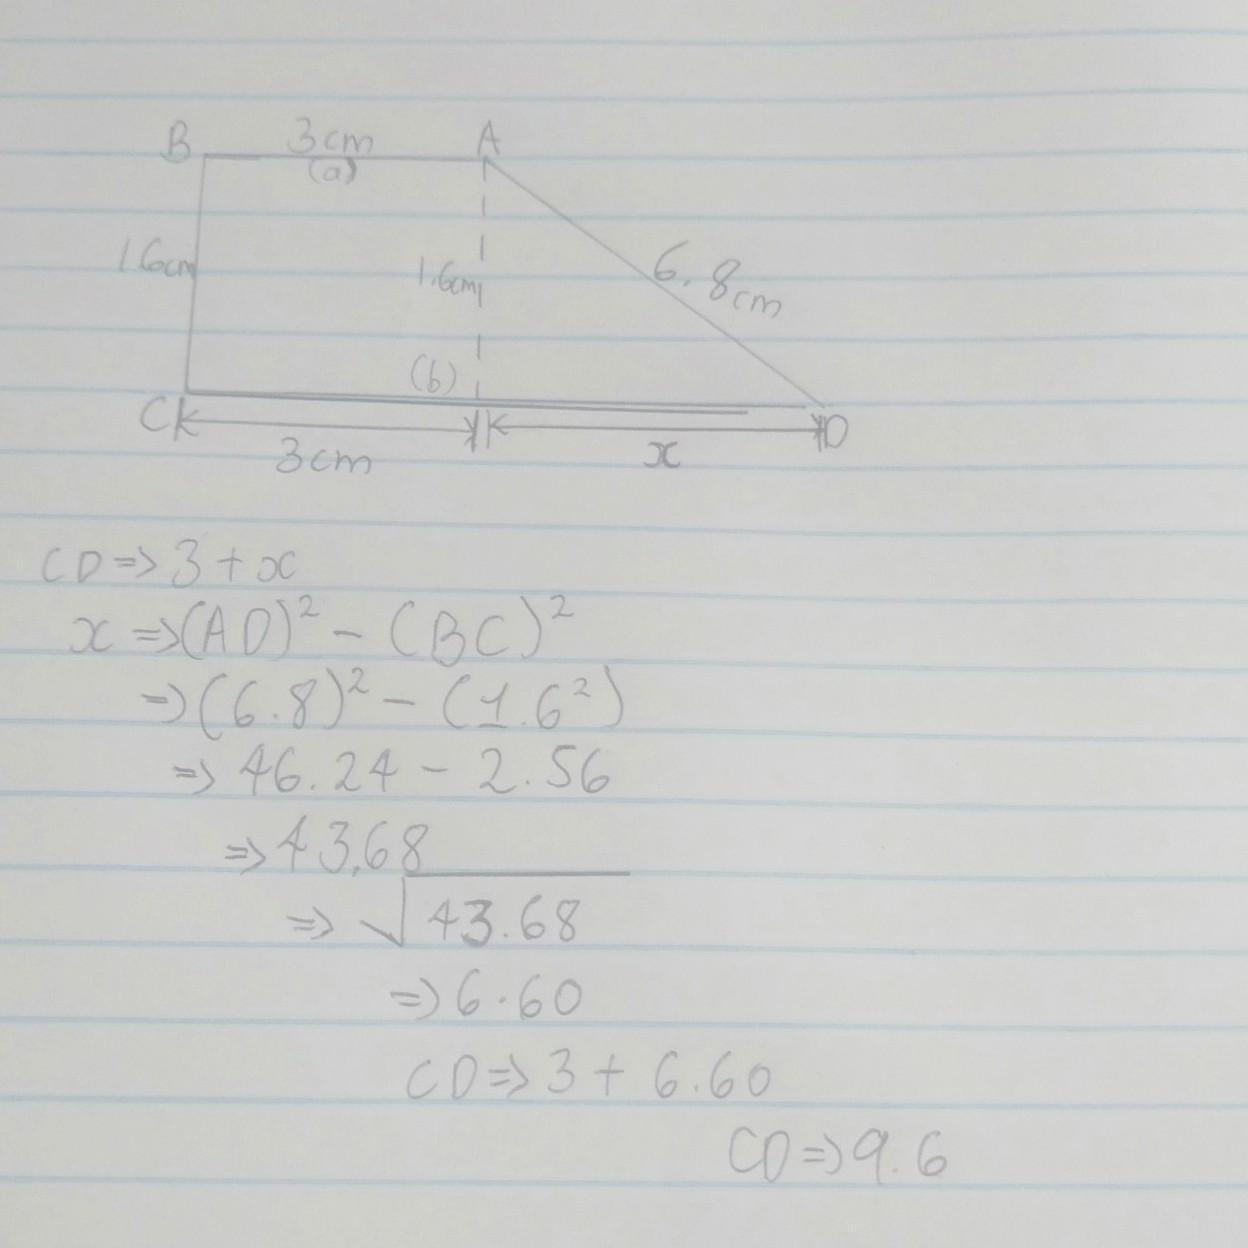 B 3cm A
(a)
1.6cm 1.6cm 6.8cm
(b)
C D
3cm x
CD => 3 + x
x => (AD)² - (BC)²
=> (6.8)² - (1.6²)
=> 46.24 - 2.56
=> 43.68
=> √43.68
=> 6.60
CD => 3 + 6.60
CD => 9.6